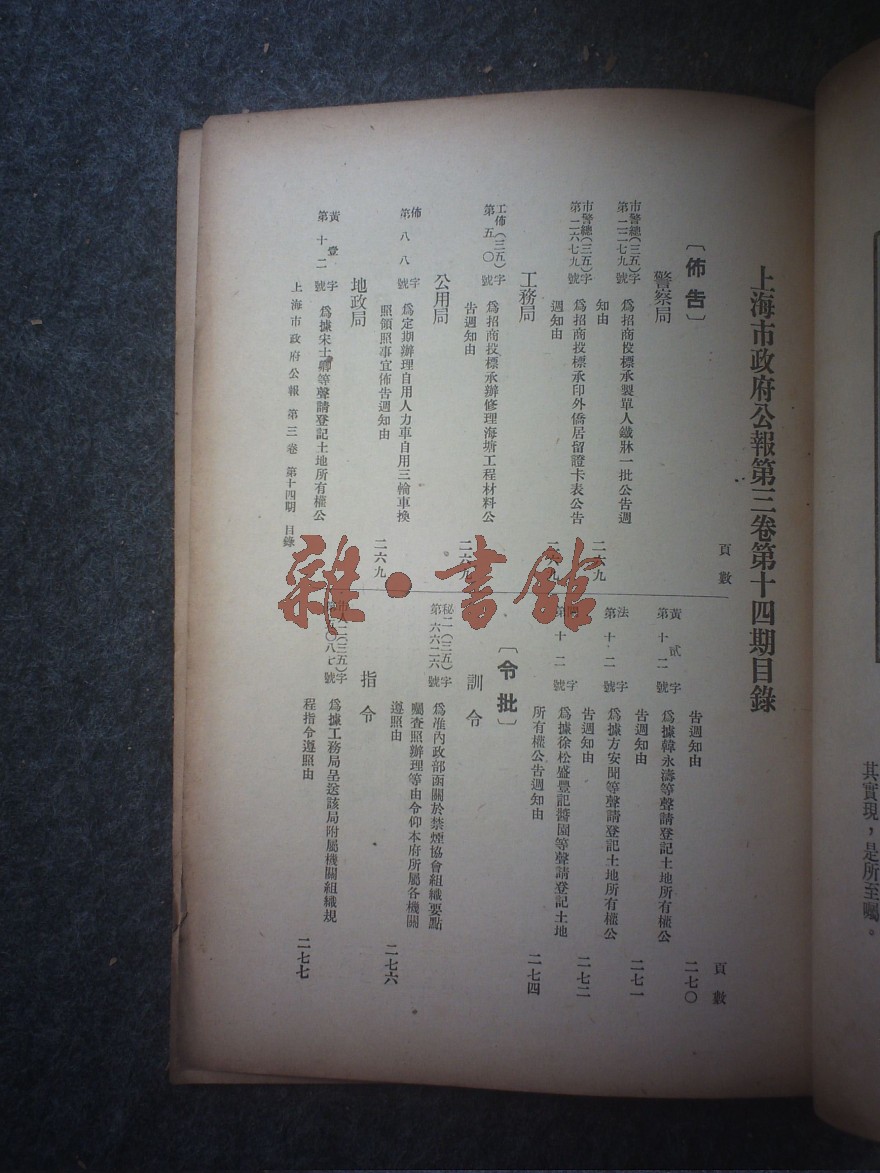 上海市政府公報第三卷第十四期目錄
頁數
〔佈告〕
警察局
市警總(三五)字
第二二七九號
爲招商投標承製單人鐵牀一批公告週
知由
二六九
市警總(三五)字
第二六七九號
爲招商投標承印外僑居留證卡表公告
週知由
二六九
工務局
工佈(三五)字
第五〇號
爲招商投標承辦修理海塘工程材料公
告週知由
二六九
公用局
佈字
第八八號
爲定期辦理自用人力車自用三輪車換
照領照事宜佈告週知由
二六九
地政局
黃壹字
第十二號
爲據宋士卿等聲請登記土地所有權公
告週知由
二七〇
頁數
黃貳字
第十二號
爲據韓永濤等聲請登記土地所有權公
告週知由
二七一
法字
第十二號
爲據方安聞等聲請登記土地所有權公
告週知由
二七二
字
第十二號
爲據徐松盛豐記醬園等聲請登記土地
所有權公告週知由
二七四
〔令批〕
訓令
秘二(三五)字
第六六二六號
爲准內政部函關於禁煙協會組織要點
囑查照辦理等由令仰本府所屬各機關
遵照由
二七六
指令
二(三五)字
〇八七號
爲據工務局呈送該局附屬機關組織規
程指令遵照由
二七七
上海市政府公報 第三卷 第十四期 目錄
雜·書館
其實現，是所至囑。